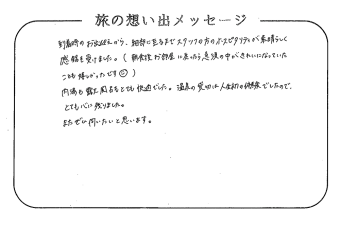 旅の想い出メッセージ
到着時のお出迎えから、細部に至るまでスタッフの方のホスピタリティが素晴らしく
感銘を受けました。(朝食後お部屋に戻ったら急須の中がきれいになっていた
ことも嬉しかったです☺)
内湯も露天風呂もとても快適でした。温泉の貸切は人生初の体験でしたので、
とても心に残りました。
またぜひ伺いたいと思います。